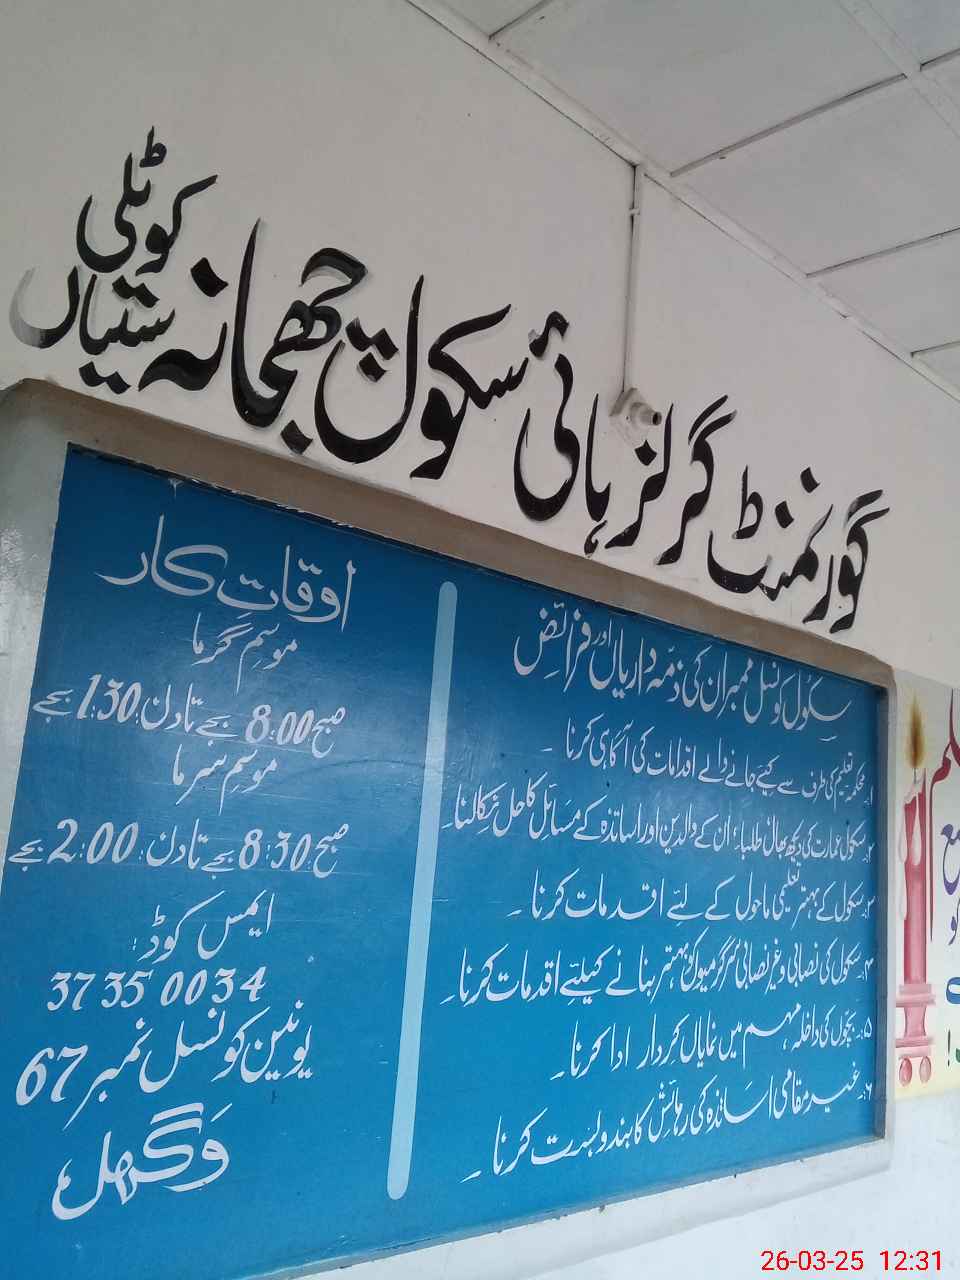 گورنمنٹ گرلز ہائی سکول چھجانہ کوٹلی ستیاں
سکول کونسل ممبران کی ذمہ داریاں اور فرائض
۱۔ محکمہ تعلیم کی طرف سے کیے جانے والے اقدامات کی آگاہی کرنا ۔
۲۔ سکول عمارت کی دیکھ بھال، طلباء، ان کے والدین اور اساتذہ کے مسائل کا حل نکالنا۔
۳۔ سکول کے بہتر تعلیمی ماحول کے لئے اقدمات کرنا ۔
۴۔ سکول کی نصابی و غیر نصابی سرگرمیوں کو بہتر بنانے کیلئے اقدمات کرنا ۔
۵۔ بچوں کی داخلہ مہم میں نمایاں کردار ادا کرنا ۔
۶۔ غیر مقامی اساتذہ کی رہائش کا بندوبست کرنا ۔
اوقاتِ کار
موسمِ گرما
صبح 8:00 بجے تا دن: 1:30 بجے
موسمِ سرما
صبح 8:30 بجے تا دن: 2:00 بجے
ایمس کوڈ:
37350034
یونین کونسل نمبر 67
وگھل
26-03-25 12:31